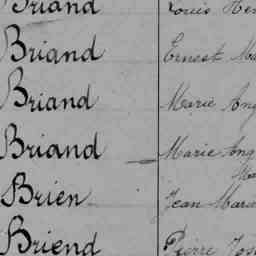 Briand Louis
Briand Ernest
Briand Marie
Briand Marie Ang
Brien Jean Marie
Briend Pierre